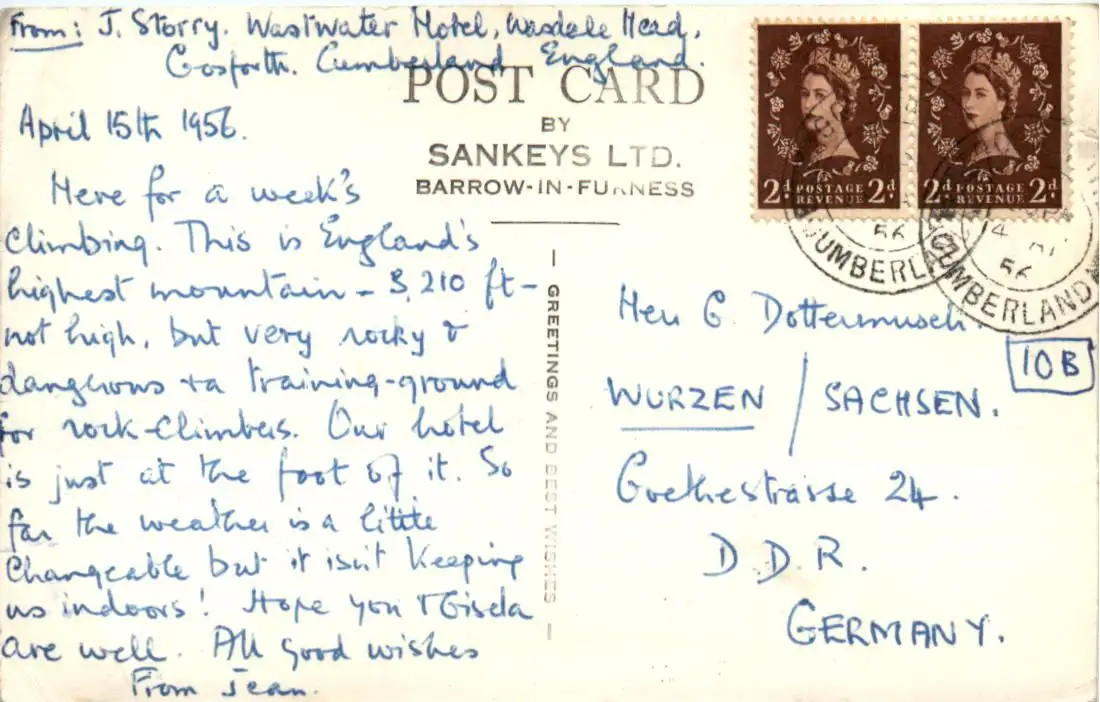 From: J. Storry. Wastwater Hotel, Wasdale Head,
Gosforth. Cumberland England.
POST CARD
BY
SANKEYS LTD.
BARROW-IN-FURNESS
April 15th 1956.
Here for a week's
climbing. This is England's
highest mountain - 3,210 ft -
not high, but very rocky &
dangerous & a training-ground
for rock-climbers. Our hotel
is just at the foot of it. So
far the weather is a little
changeable but it isn't keeping
us indoors! Hope you & Gisela
are well. All good wishes
From Jean.
- GREETINGS AND BEST WISHES -
2d POSTAGE 2d
REVENUE
2d POSTAGE 2d
REVENUE
56
CUMBERLAND
56
CUMBERLAND
Herr G. Dottermusch.
10B
WURZEN / SACHSEN.
Goethestrasse 24.
D.D.R.
GERMANY.